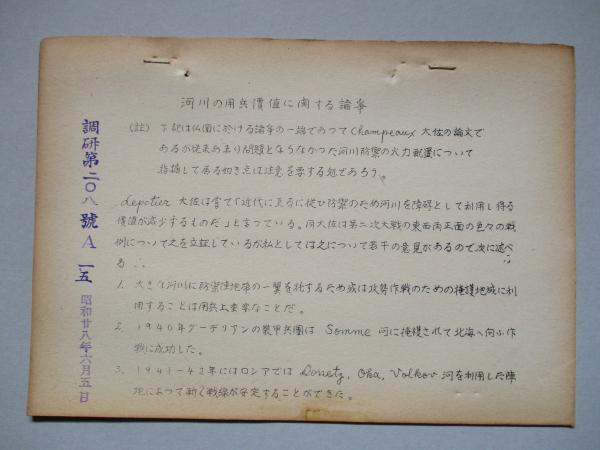 調研第二〇八號A一五 昭和廿八年六月五日
河川の用兵價値に関する論争
(註) 下記は仏國に於ける論争の一端でのつてChampeaux大佐の論文で
あるが従来あまり問題とならなかった河川防禦の火力配置について
指摘して居る如き点は注意を要する処であろう。
depotier大佐は嘗て「近代に至るに従ひ防禦のため河川を障碍として利用し得る
價値が減少するものだ」と言つている。同大佐は第二次大戦の東西両正面の色々の戦
例について之を立証しているが私としては之について若干の意見があるので次に述べ
る
1. 大きな河川に防禦陣地帯の一翼を托するため或は攻勢作戦のための掩護地域に利
用することは用兵上重要なことだ。
2. 1940年グーデリアンの裝甲兵團は Somme 河に掩護されて北海へ向ふ作
戦に成功した。
3. 1941-42年にはロシアでは Donetz, Oka, Volkov 河を利用した陣
地によつて新く戦線が安定することができた。